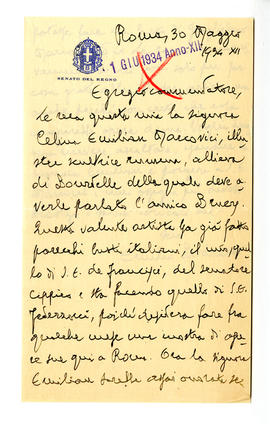 SENATO DEL REGNO
Roma, 30 Maggio
1934 XII
1 GIU 1934 Anno XII
Egregio commendatore,
Le reca questa mia la signora
Celina Emilian Marcovici, illu-
stre scultrice rumena, allieva
di Bourdelle della quale deve a-
verle parlato l'amico
Questa valente artista ha già fatto
parecchi busti italiani, il mio, quel-
lo di S. E. de Francisci, del senatore
Cippico e sta facendo quello di S. E.
Federzoni, poichè desidera fare fra
qualche mese una mostra di ope-
re sue qui a Roma. Ora la signora
Emilian sarebbe assai onorata se